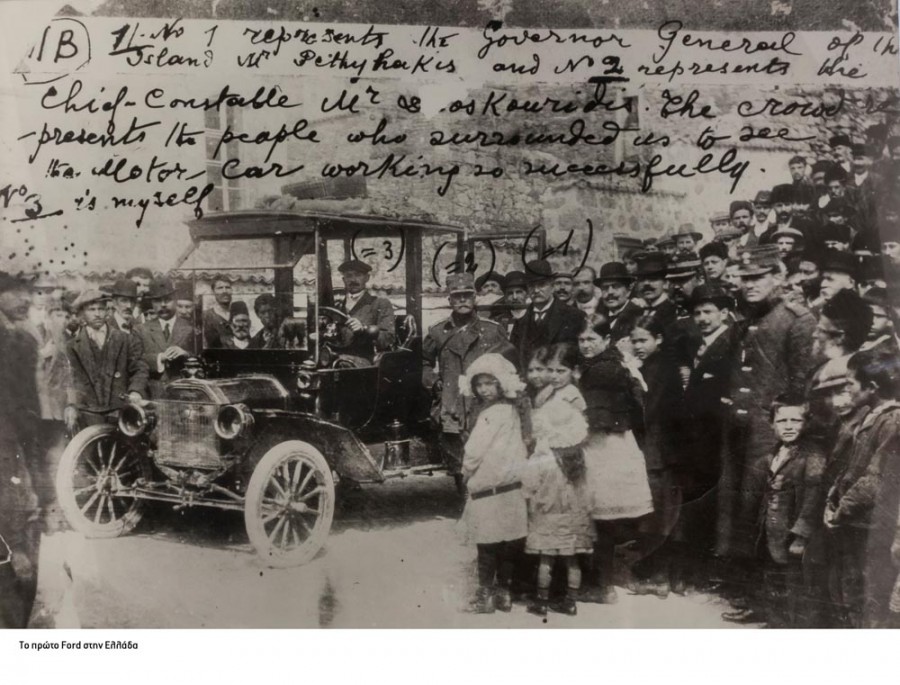 1B) 1/- No 1 represents the Governor General of th
Island Mr Pethyhakis and No 2 represents the
Chief-Constable Mr oskouridis. The crowd re
-presents the people who surrounded us to see
the Motor car working so successfully.
No 3 is myself
(=3) (=2) (=1)
Το πρώτο Ford στην Ελλάδα